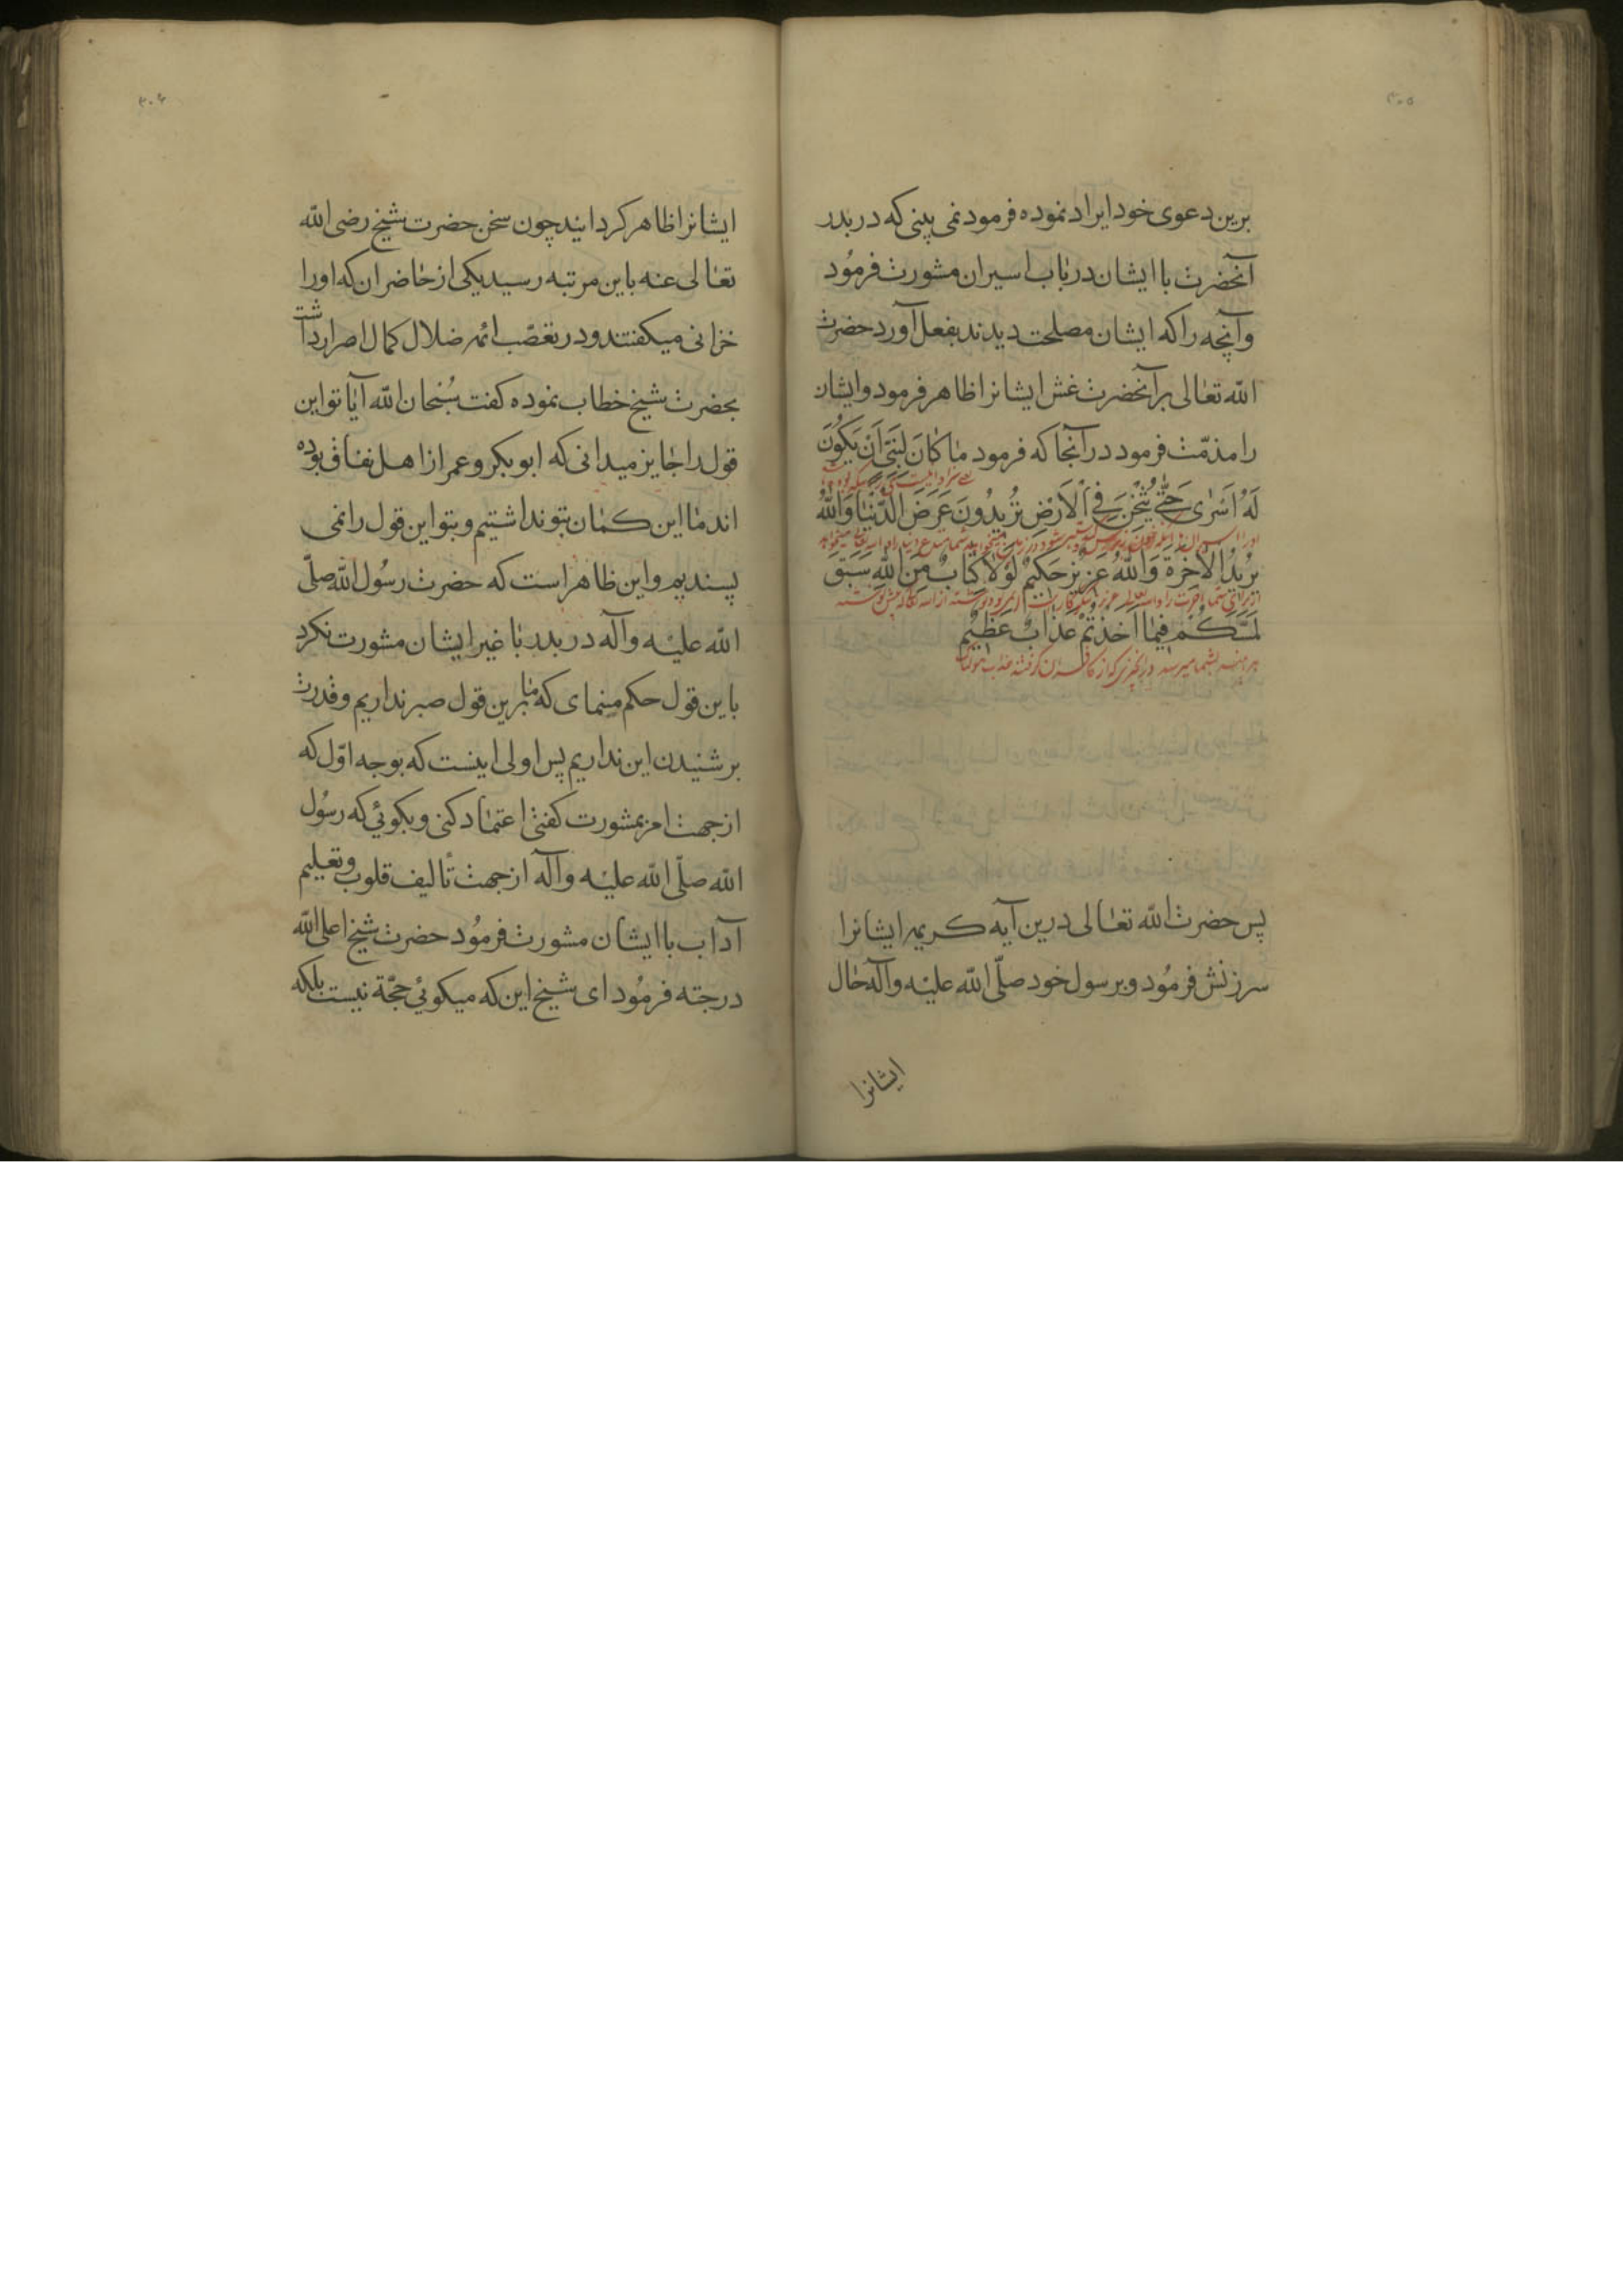 ۳۰۵
برین دعوی خود ایراد نموده فرمود نمی بینی که در بدر
آنحضرت با ایشان در باب اسیران مشورت فرمُود
وآنچه را که ایشان مصلحت دیدند بفعل آورد حضرت
الله تعالی بر آنحضرت غش ایشانرا ظاهر فرمود وایشان
را مذمّت فرمود در آنجا که فرمود مَا كَانَ لِنَبِيٍّ اَنْ يَكُونَ
لَهُ اَسْرٰى حَتّٰى يُثْخِنَ فِي الْاَرْضِ تُرِيدُونَ عَرَضَ الدُّنْيَا وَاللّٰهُ
يُرِيدُ الْاٰخِرَةَ وَاللّٰهُ عَزِيزٌ حَكِيمٌ لَوْلَا كِتَابٌ مِنَ اللّٰهِ سَبَقَ
لَمَسَّكُمْ فِيمَا اَخَذْتُمْ عَذَابٌ عَظِيمٌ
پس حضرت الله تعالی درین آیه کریمه ایشانرا
سرزنش فرمُود وبر رسول خود صلّی الله علیه وآله حال
ایشانرا
۳۰۶
ایشانرا ظاهر کردانید چون سخن حضرت شیخ رضی الله
تعالی عنه باین مرتبه رسید یکی از حاضران که اورا
خزانی میکفتند ودر تعصّب ائمه ضلال کمال اصرار داشت
بحضرت شیخ خطاب نموده کفت سُبْحان الله آیا تو این
قول را جایز میدانی که ابو بکر وعمر از اهل نفاق بوده
اند ما این کمان بتو نداشتیم وبتو این قول را نمی
پسندیم واین ظاهر است که حضرت رسُول الله صلّی
الله علیه وآله در بدر با غیر ایشان مشورت نکرد
باین قول حکم منمای که ما برین قول صبر نداریم وقدرت
بر شنیدن این نداریم پس اولی اینست که بوجه اوّل که
از جهت امر بمشورت کفتی اعتماد کنی وبکوئی که رسُول
الله صلّی الله علیه وآله از جهت تألیف قلوب وتعلیم
آداب با ایشان مشورت فرمُود حضرت شیخ اعلی الله
درجته فرمُود ای شیخ این که میکوئی حجّة نیست بلکه